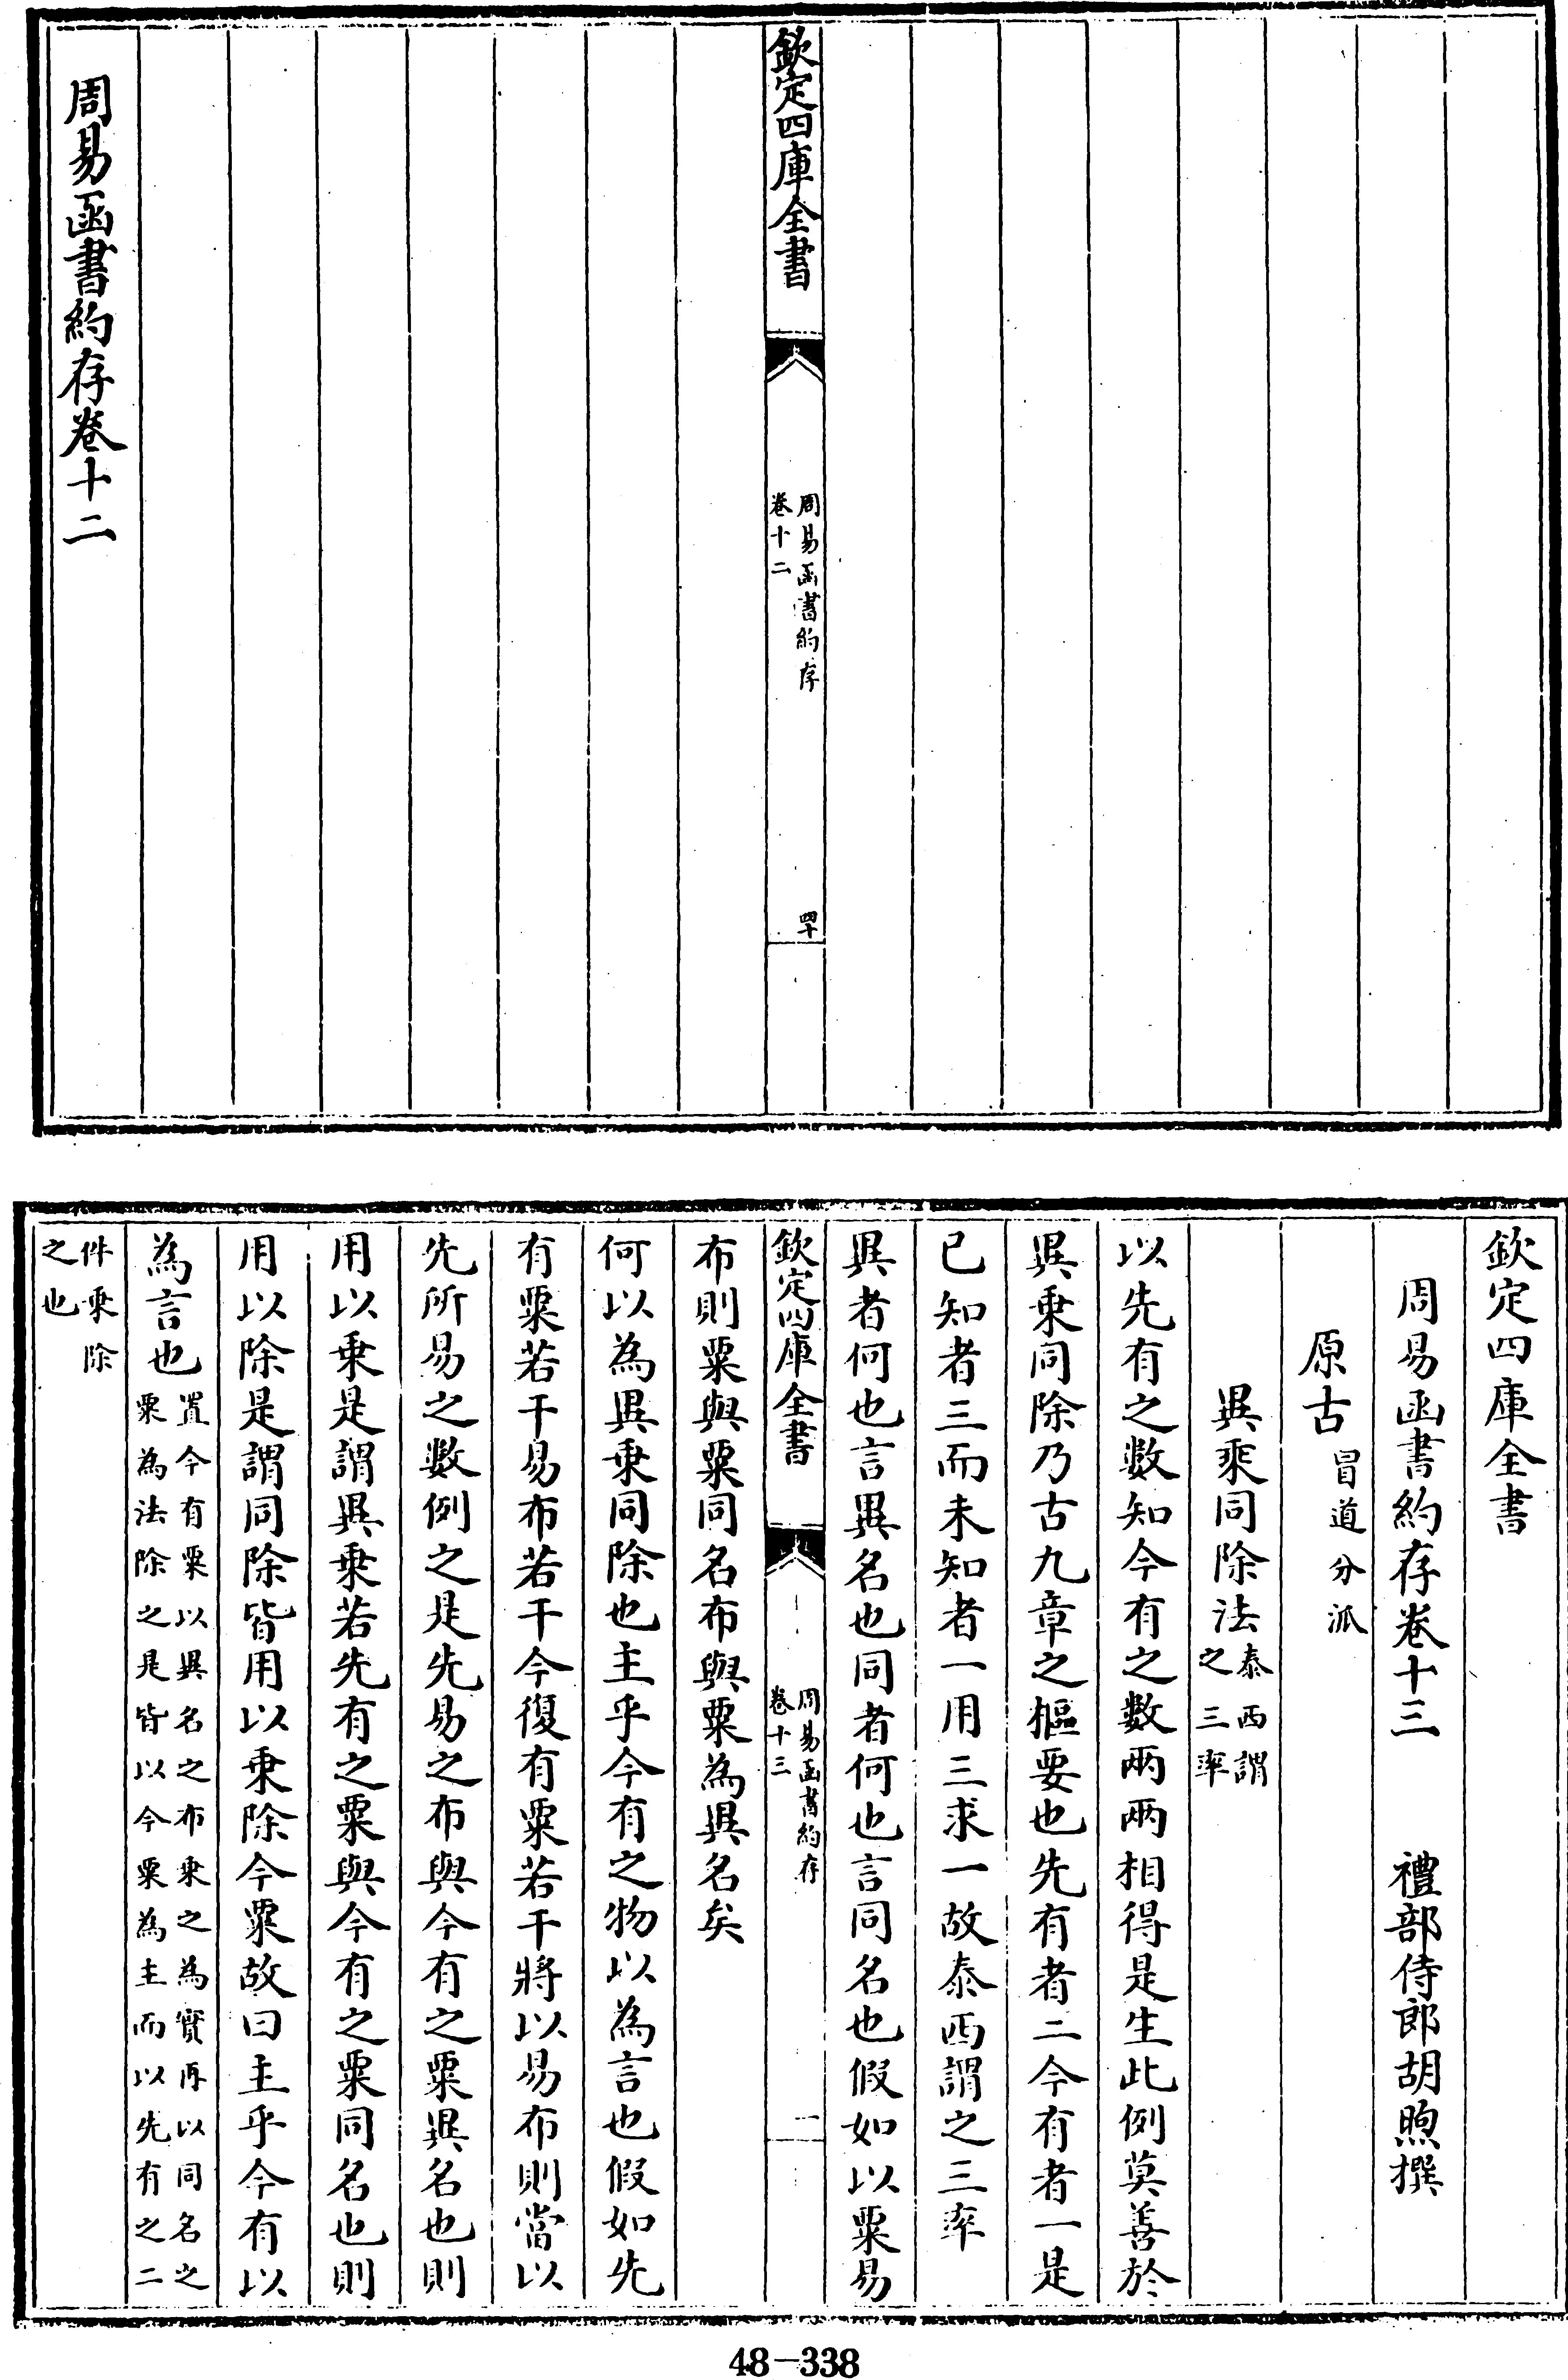 欽定四庫全書
周易函書約存
卷十二
四十
周易函書約存卷十二
欽定四庫全書
周易函書約存卷十三　禮部侍郎胡煦撰
原古冒道分派
異乘同除法泰西謂
之三率
以先有之數知今有之數兩兩相得是生此例莫善於
異乗同除乃古九章之樞要也先有者二今有者一是
已知者三而未知者一用三求一故泰西謂之三率
異者何也言異名也同者何也言同名也假如以粟易
欽定四庫全書
周易函書約存
卷十三
一
布則粟與粟同名布與粟為異名矣
何以為異乗同除也主乎今有之物以為言也假如先
有粟若干易布若干今復有粟若干將以易布則當以
先所易之數例之是先易之布與今有之粟異名也則
用以乗是謂異乗若先有之粟與今有之粟同名也則
用以除是謂同除皆用以乗除今粟故曰主乎今有以
為言也置今有粟以異名之布乗之為實再以同名之
粟為法除之是皆以今粟為主而以先有之二
件乗除
之也
48-338